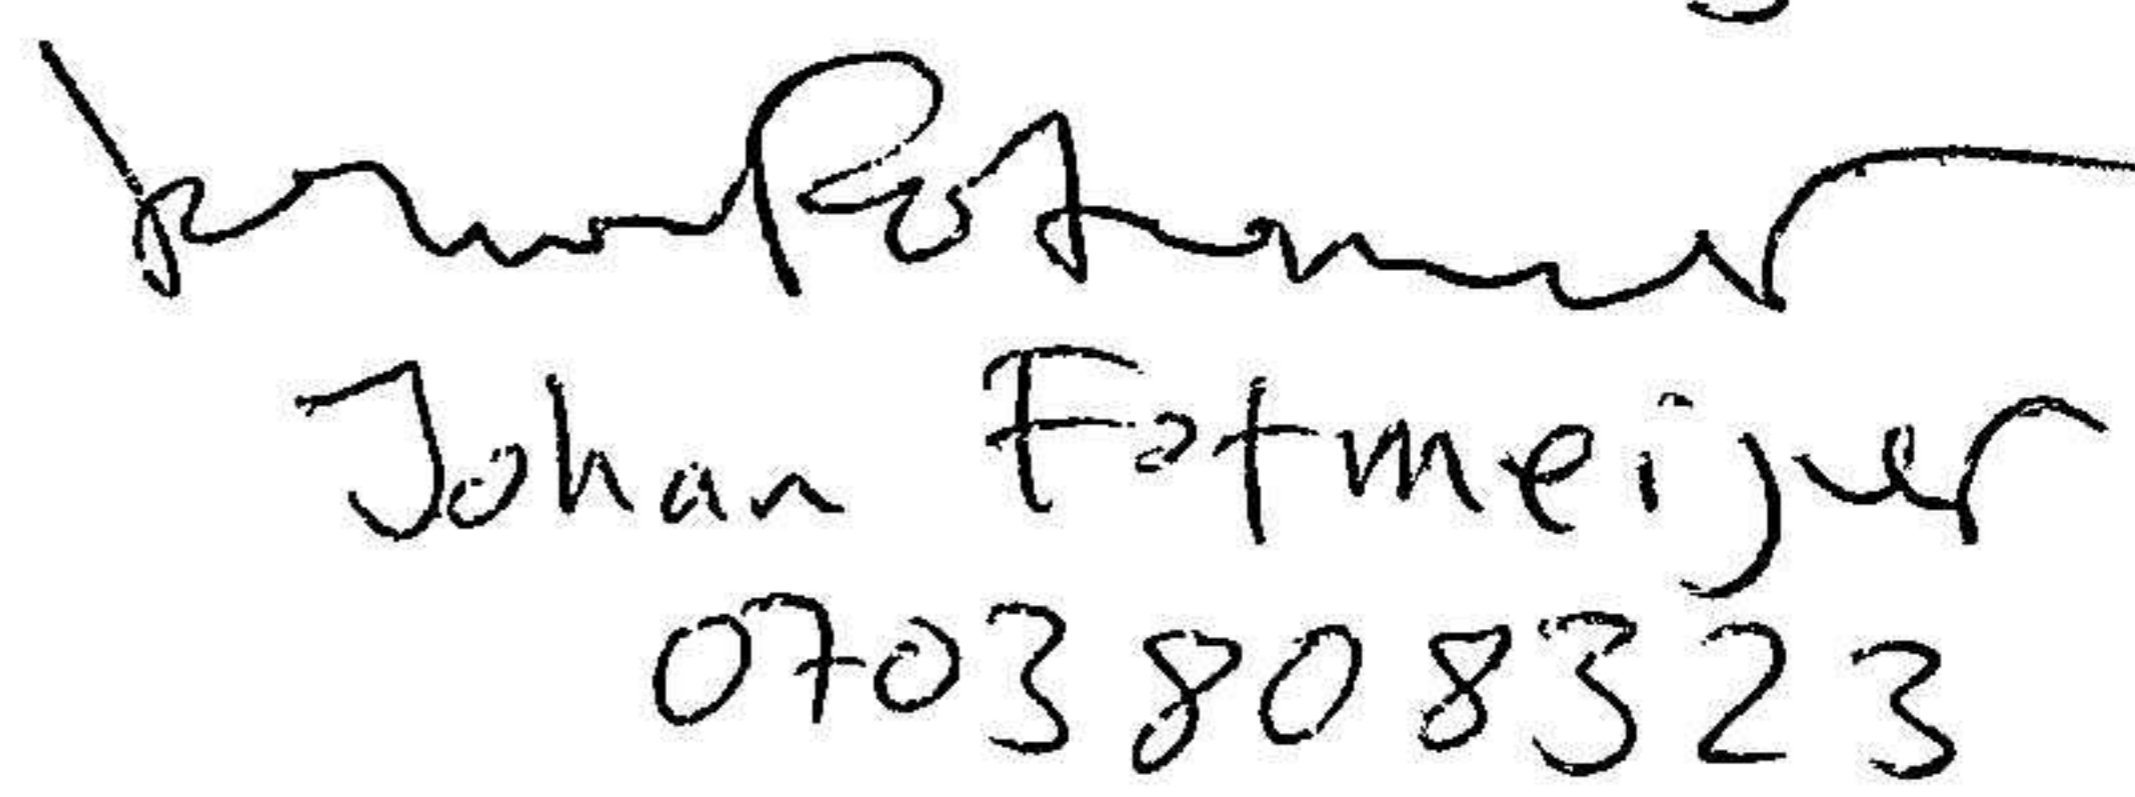 Johan Fotmeijer
0703808323